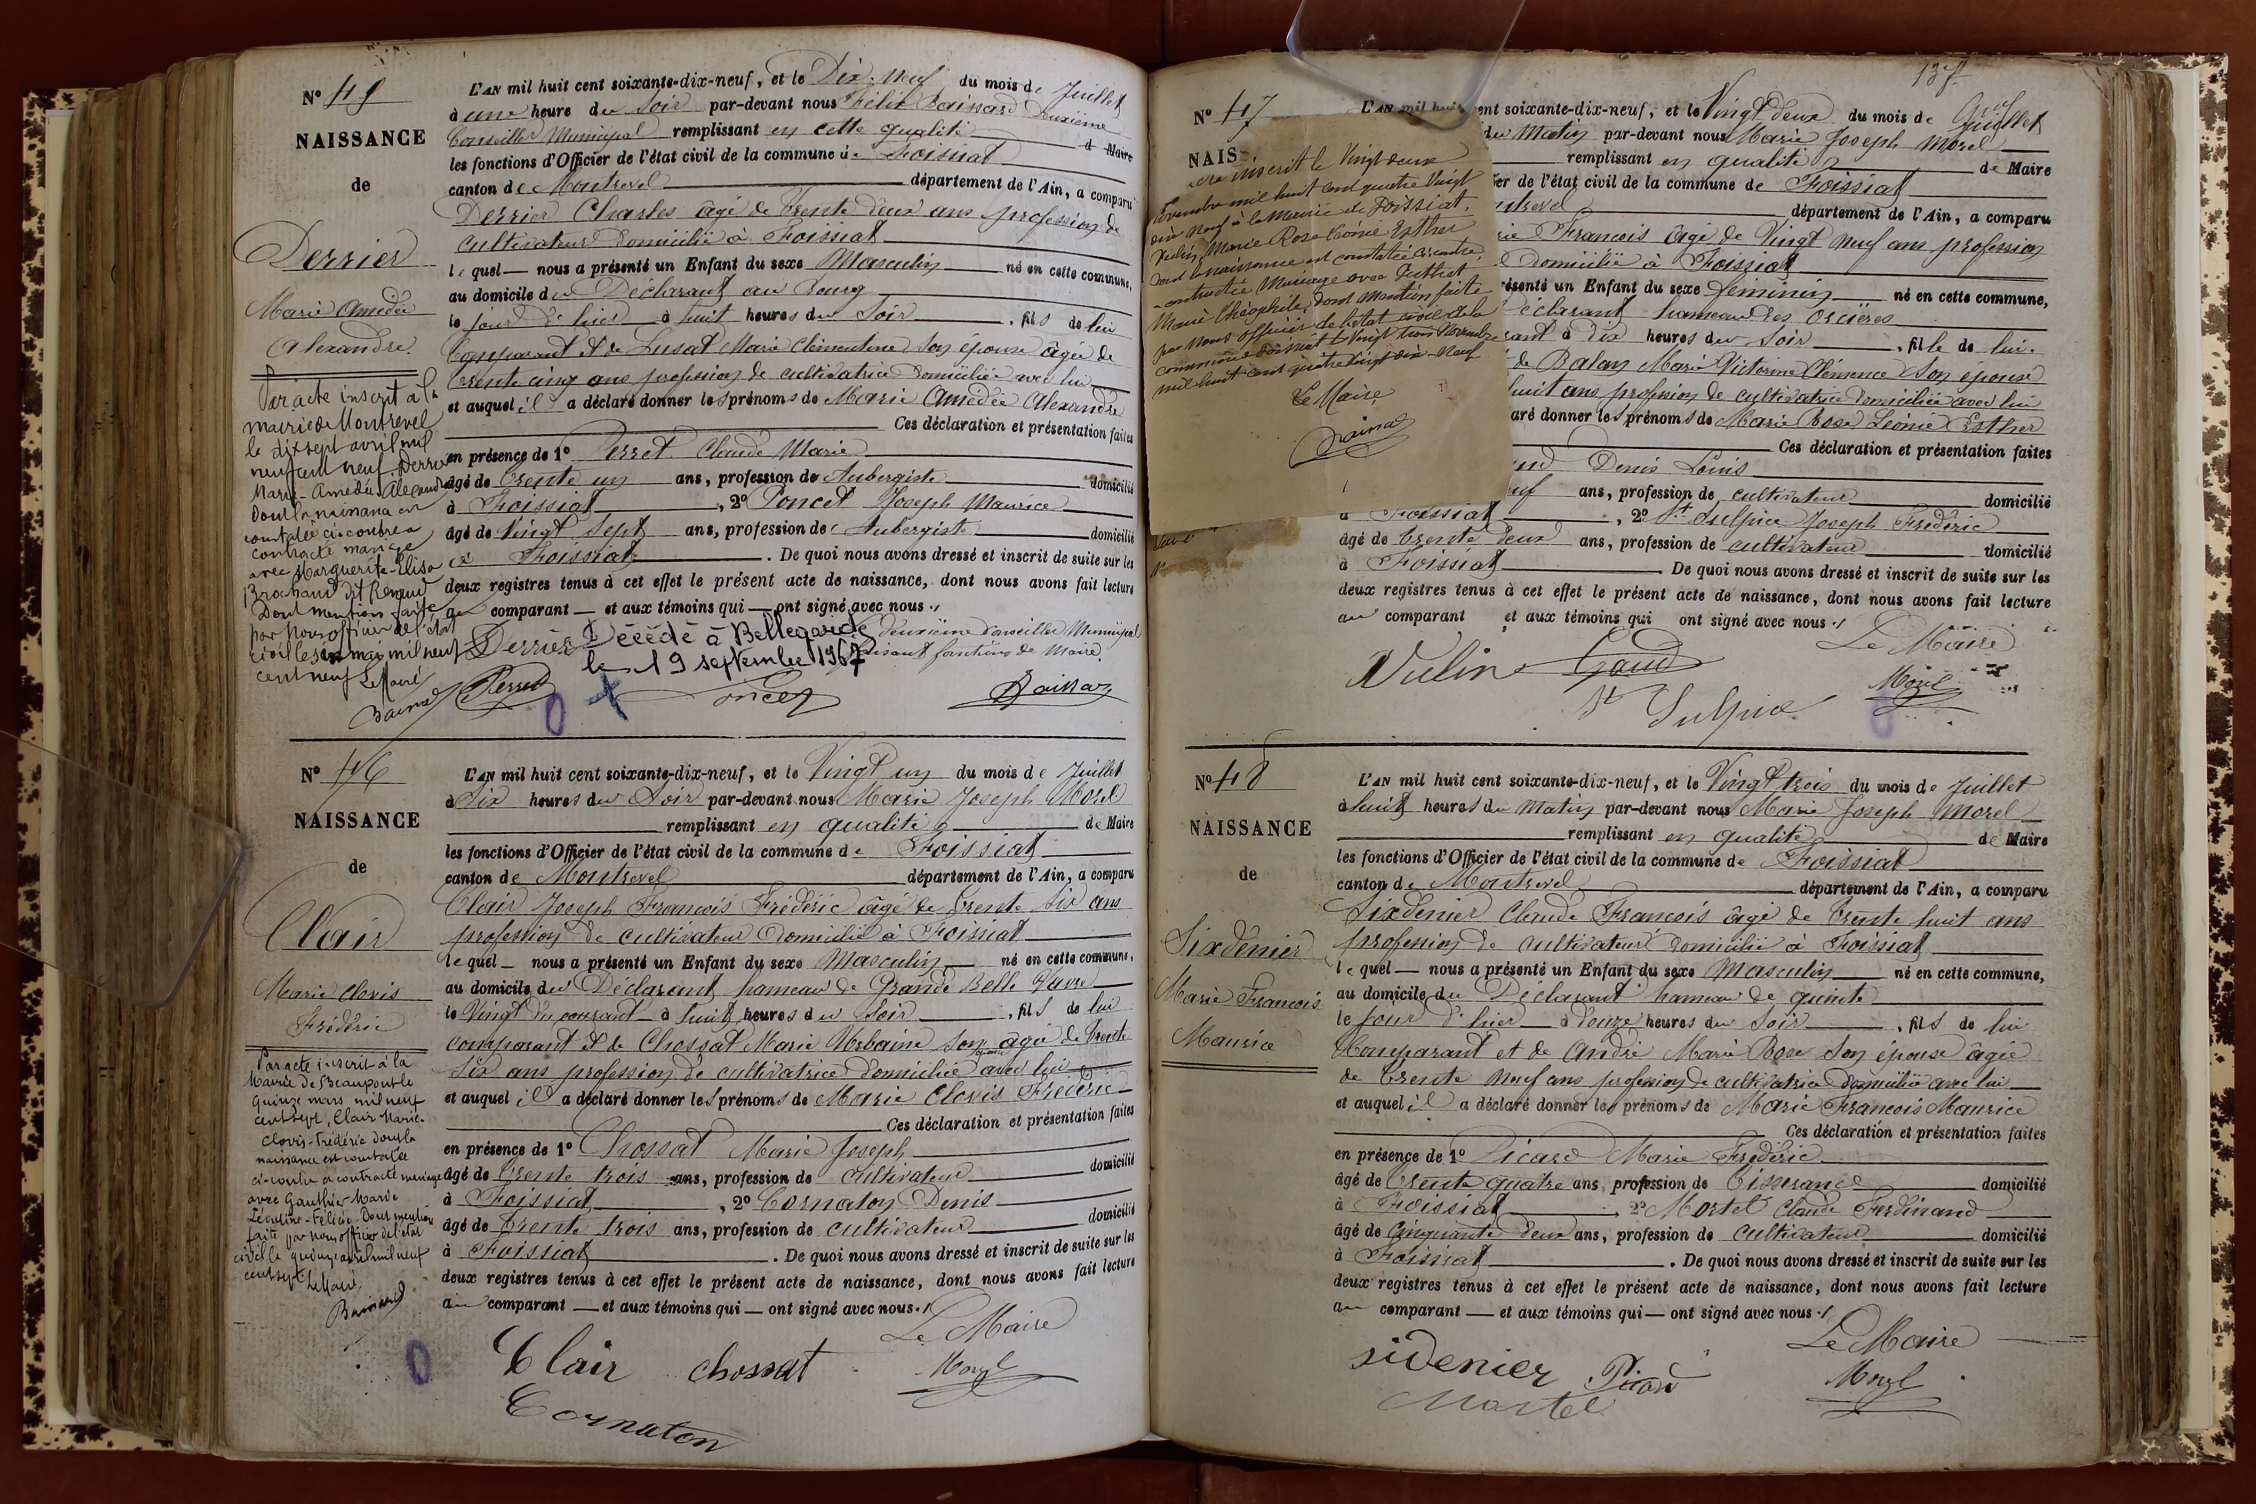 N° 45
NAISSANCE
de
Derrier
Marie Amédée
Alexandre.
Par acte inscrit à la
mairie de Montrevel
le dix sept avril mil
neuf cent neuf, Derrier
Marie-Amédée-Alexandre
dont la naissance est
constatée ci-contre a
contracté mariage
avec Marguerite-Elisa
Brochand dit Renaud
Dont mention faite
par nous officier de l'état
civil le six mai mil neuf
cent neuf Le Maire
L'AN mil huit cent soixante-dix-neuf, et le Dix Neuf du mois de Juillet
à une heure du Soir par-devant nous Félix Baissard Deuxième
Conseiller Municipal remplissant en cette qualité d Maire
les fonctions d'Officier de l'état civil de la commune de Foissiat
canton de Montrevel département de l'Ain, a comparu
Derrier Charles âgé de trente deux ans profession de
cultivateur domicilié à Foissiat
lequel — nous a présenté un Enfant du sexe Masculin né en cette commune,
au domicile du Déclarant au Bourg
le jour d'hier à huit heures du Soir , fils de lui
Comparant et de Lusat Marie Clémentine son épouse âgée de
trente cinq ans profession de cultivatrice domiciliée avec lui
et auquel il a déclaré donner les prénoms de Marie Amédée Alexandre
Ces déclaration et présentation faites
en présence de 1° Perret Claude Marie
âgé de trente un ans, profession de Aubergiste domicilié
à Foissiat , 2° Poncet Joseph Maurice
âgé de vingt sept ans, profession de Aubergiste domicilié
à Foissiat . De quoi nous avons dressé et inscrit de suite sur les
deux registres tenus à cet effet le présent acte de naissance, dont nous avons fait lecture
au comparant — et aux témoins qui — ont signé avec nous ./
Le deuxième Conseiller Municipal
faisant fonctions de Maire.
Derrier Décédé à Bellegarde
le 19 septembre 1967
Perret Poncet Baissard
N° 46
NAISSANCE
de
Clair
Marie Clovis
Frédéric
Par acte inscrit à la
Mairie de Beaupont le
quinze mars mil neuf
cent sept, Clair Marie-
Clovis-Frédéric dont la
naissance est constatée
ci-contre a contracté mariage
avec Gauthier Marie
Léontine-Félicie. Dont mention
faite par nous officier de l'état
civil le quinze avril mil neuf
cent sept Le Maire
L'AN mil huit cent soixante-dix-neuf, et le Vingt un du mois de Juillet
à Six heures du Soir par-devant nous Marie Joseph Morel
remplissant en qualité de Maire
les fonctions d'Officier de l'état civil de la commune de Foissiat
canton de Montrevel département de l'Ain, a comparu
Clair Joseph François Frédéric âgé de trente six ans
profession de cultivateur domicilié à Foissiat
lequel — nous a présenté un Enfant du sexe Masculin né en cette commune,
au domicile du Déclarant hameau de Grande Belle Vavre
le Vingt du courant à huit heures du Soir , fils de lui
comparant et de Chossat Marie Urbaine son épouse âgée de trente
six ans profession de cultivatrice domiciliée avec lui
et auquel il a déclaré donner les prénoms de Marie Clovis Frédéric
Ces déclaration et présentation faites
en présence de 1° Chossat Marie Joseph
âgé de trente trois ans, profession de cultivateur domicilié
à Foissiat , 2° Cornaton Denis
âgé de trente trois ans, profession de cultivateur domicilié
à Foissiat . De quoi nous avons dressé et inscrit de suite sur les
deux registres tenus à cet effet le présent acte de naissance, dont nous avons fait lecture
au comparant — et aux témoins qui — ont signé avec nous ./
Le Maire
Clair chossat Morel
Cornaton
137
N° 47
NAIS
inscrit le Vingt deux
Novembre mil huit cent quatre vingt
dix neuf à la Mairie de Foissiat,
Vulin Marie Rose Léonie Esther
dont la naissance est constatée ci-contre,
contracté Mariage avec Guthiet
Marie Théophile, dont Mention faite
par nous officier de l'état civil de la
commune Foissiat le Vingt trois Novembre
mil huit cent quatre vingt dix-neuf
Le Maire
L'AN mil huit cent soixante-dix-neuf, et le Vingt deux du mois de Juillet
du Matin par-devant nous Marie Joseph Morel
remplissant en qualité de Maire
ier de l'état civil de la commune de Foissiat
ntrevel département de l'Ain, a comparu
rie François âgé de Vingt neuf ans profession
domicilié à Foissiat
résenté un Enfant du sexe Féminin né en cette commune,
Déclarant hameau des Orcières
rant à dix heures du Soir , fille de lui.
de Balan Marie Victorine Clémence son épouse
huit ans profession de cultivatrice domiciliée avec lui
aré donner les prénoms de Marie Rose Léonie Esther
Ces déclaration et présentation faites
aud Denis Louis
euf ans, profession de cultivateur domicilié
à Foissiat , 2° St Sulpice Joseph Frédéric
âgé de trente deux ans, profession de cultivateur domicilié
à Foissiat . De quoi nous avons dressé et inscrit de suite sur les
deux registres tenus à cet effet le présent acte de naissance, dont nous avons fait lecture
au comparant et aux témoins qui ont signé avec nous ./
Le Maire
Vulin Gaud Morel
St Sulpice
N° 48
NAISSANCE
de
Sixdenier
Marie François
Maurice
L'AN mil huit cent soixante-dix-neuf, et le Vingt trois du mois de Juillet
à huit heures du Matin par-devant nous Marie Joseph Morel
remplissant en qualité de Maire
les fonctions d'Officier de l'état civil de la commune de Foissiat
canton de Montrevel département de l'Ain, a comparu
Sixdenier Claude François âgé de trente huit ans
profession de cultivateur domicilié à Foissiat
lequel — nous a présenté un Enfant du sexe Masculin né en cette commune,
au domicile du Déclarant hameau de quinte
le jour d'hier à douze heures du Soir , fils de lui
Comparant et de André Marie Rose son épouse âgée
de trente neuf ans profession de cultivatrice domiciliée avec lui
et auquel il a déclaré donner les prénoms de Marie François Maurice
Ces déclaration et présentation faites
en présence de 1° Picard Marie Frédéric
âgé de trente quatre ans, profession de tisserand domicilié
à Foissiat , 2° Martel Claude Ferdinand
âgé de Cinquante deux ans, profession de cultivateur domicilié
à Foissiat . De quoi nous avons dressé et inscrit de suite sur les
deux registres tenus à cet effet le présent acte de naissance, dont nous avons fait lecture
au comparant — et aux témoins qui — ont signé avec nous ./
Le Maire
sidenier Picard Morel
Martel